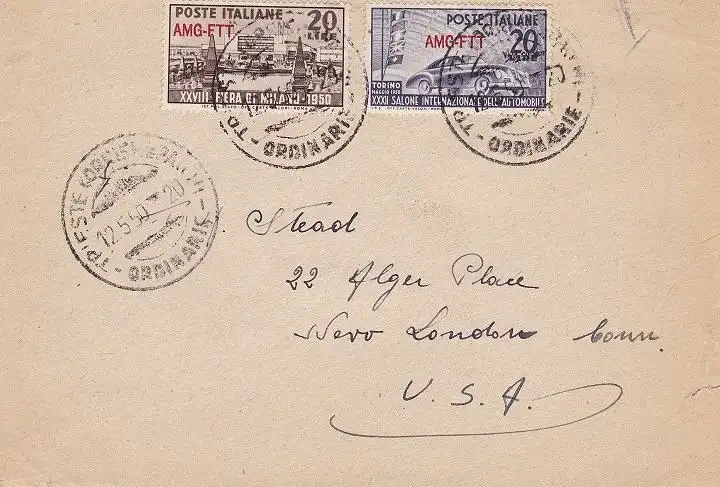 POSTE ITALIANE
20
LIRE
AMG-FTT
XXVIII FIERA DI MILANO-1950
POSTE ITALIANE
20
AMG-FTT
TORINO
MAGGIO 1950
XXXII SALONE INTERNAZIONALE DELL'AUTOMOBILE
ORDINARIE
ORDINARIE
TRIESTE
12.5.50
20
ORDINARIE
Stead
22 Alger Place
New London Conn.
U. S. A.